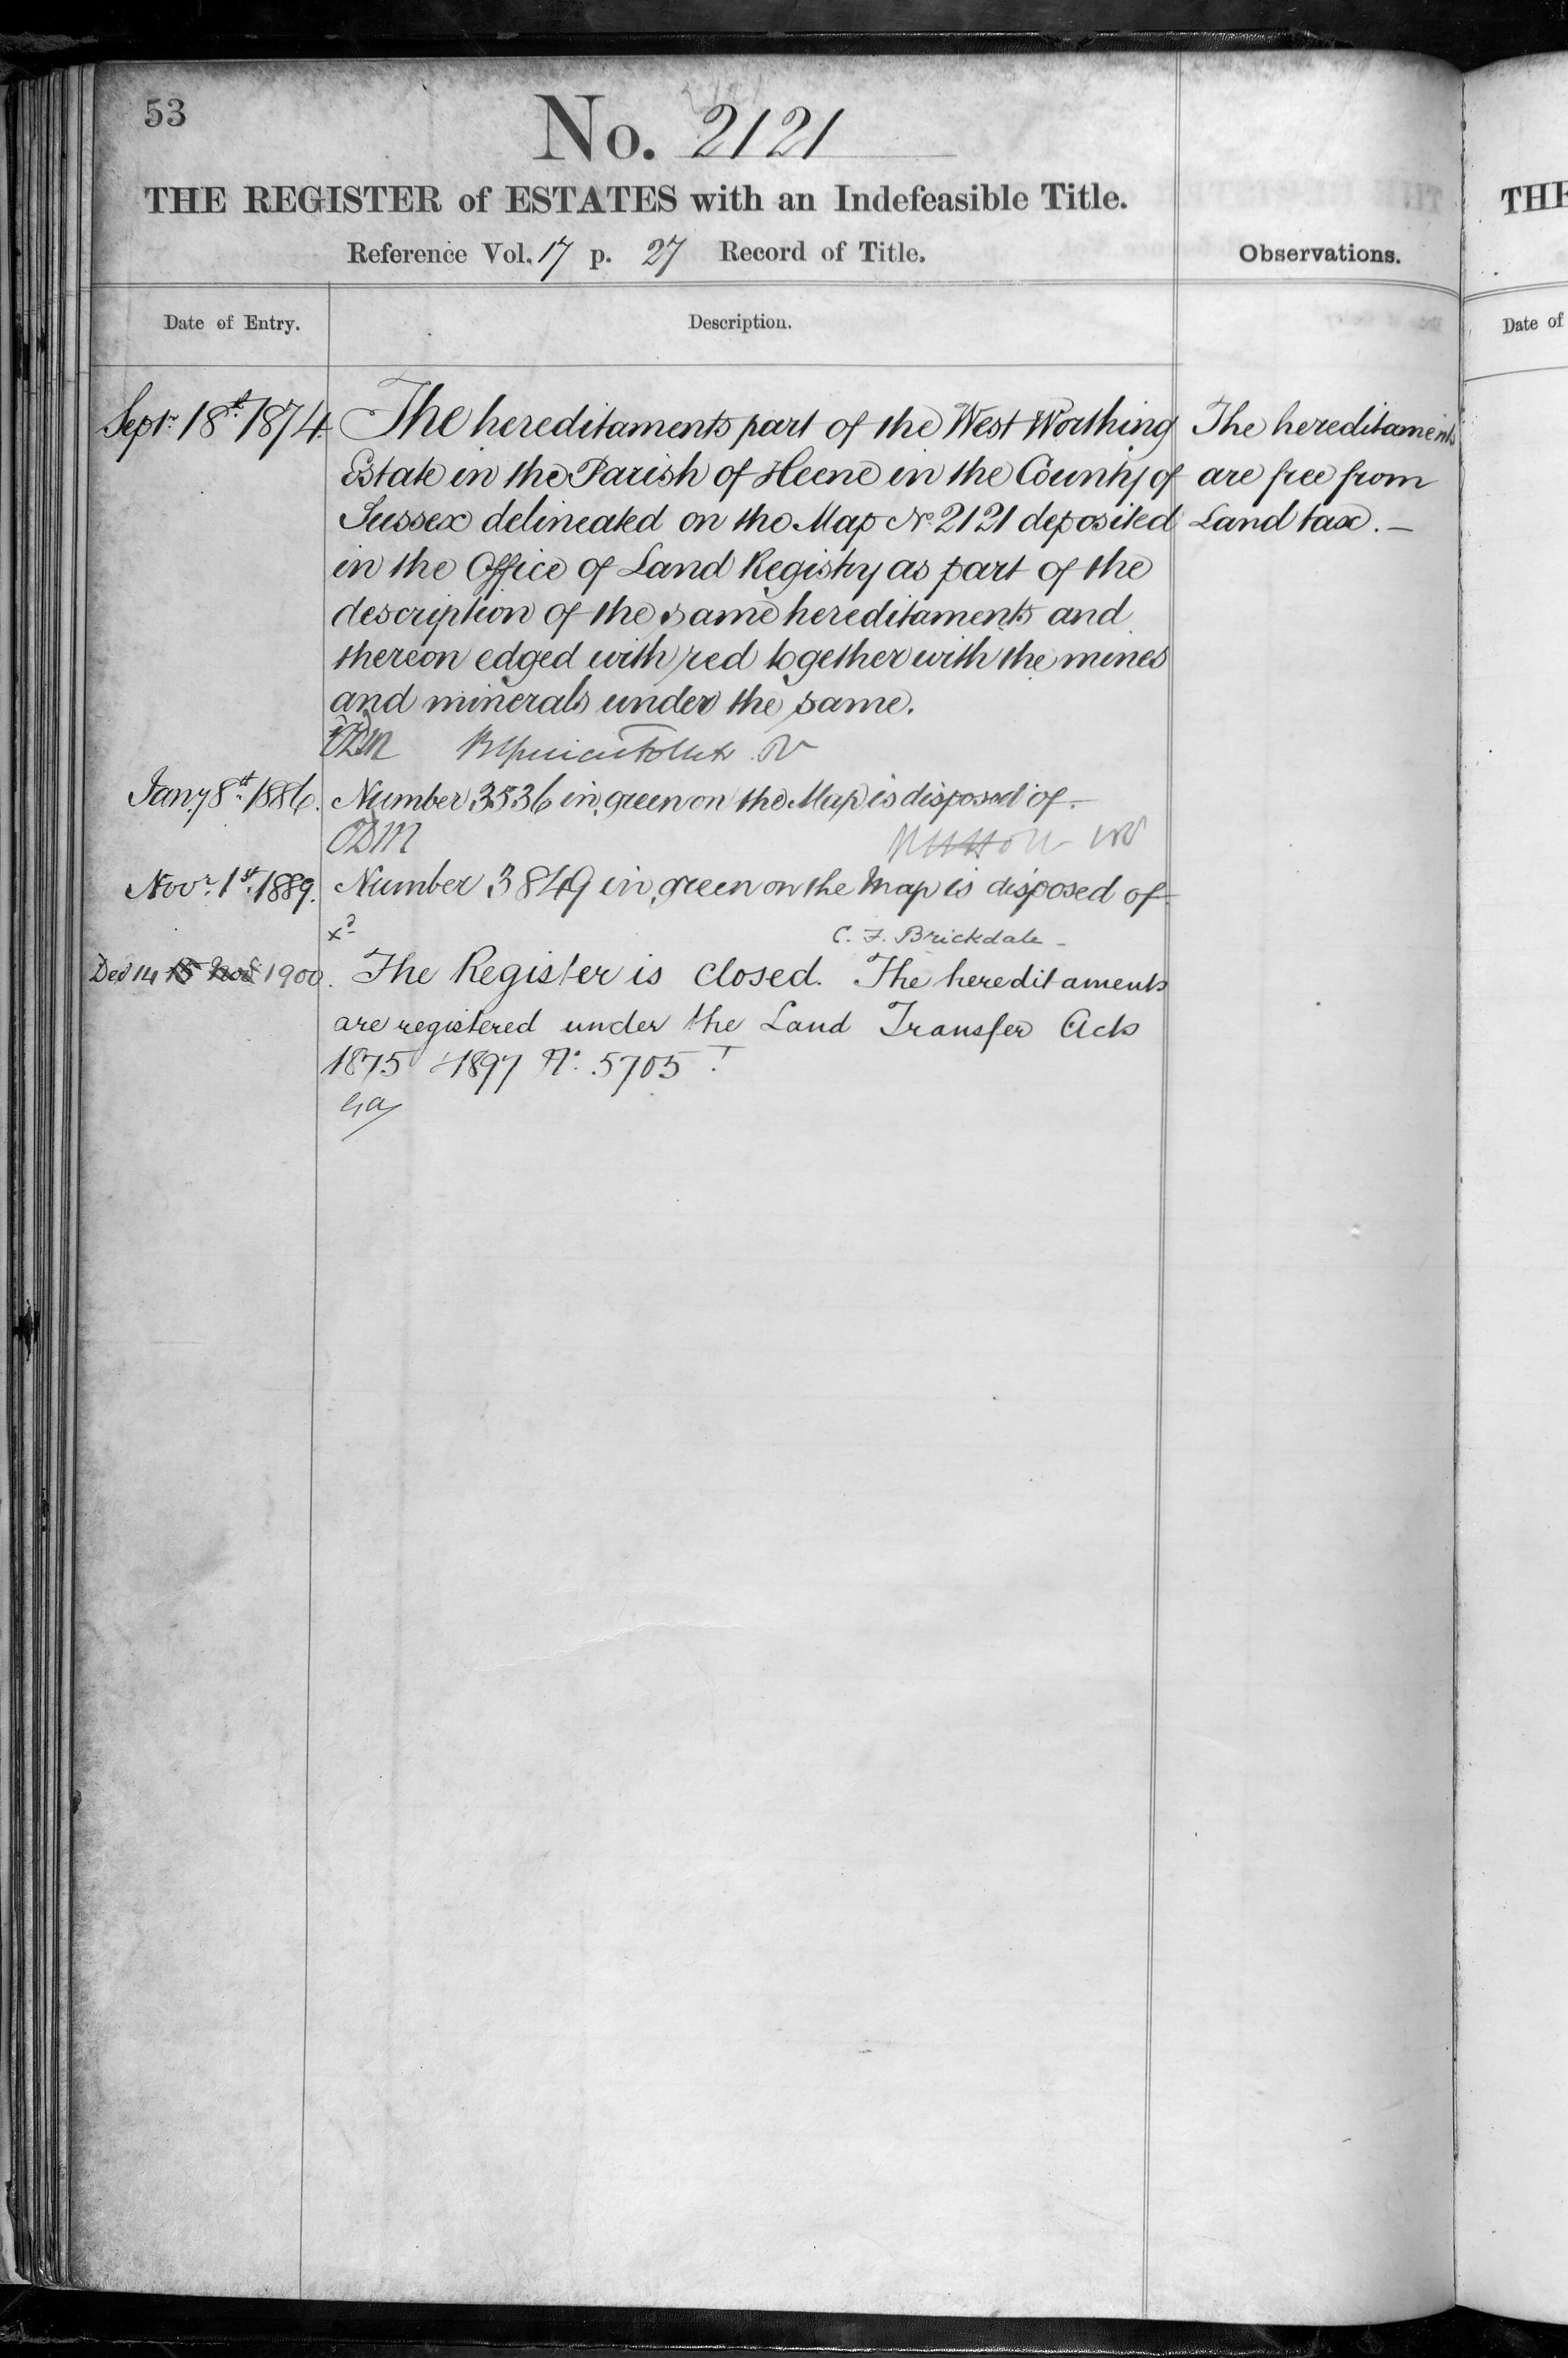 53
No. 2121
THE REGISTER of ESTATES with an Indefeasible Title.
Reference Vol. 17 p. 27 Record of Title.
Observations.
Date of Entry.
Description.
Sept. 18th 1874. The hereditaments part of the West Worthing
Estate in the Parish of Heene in the County of
Sussex delineated on the Map No. 2121 deposited
in the Office of Land Registry as part of the
description of the same hereditaments and
thereon edged with red together with the mines
and minerals under the same.
The hereditaments
are free from
Land tax. —
Jany 8th 1886. Number 3536 in green on the Map is disposed of. —
Novr. 1st 1889. Number 3849 in green on the Map is disposed of.
C. F. Brickdale —
Dec 14 15 Nov 1900. The Register is closed. The hereditaments
are registered under the Land Transfer Acts
1875 & 1897 No. 5705.
THE
Date of